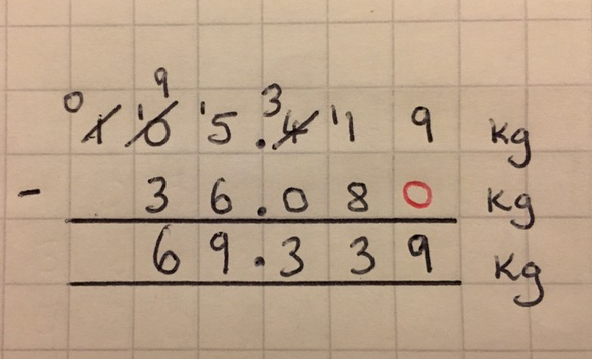 0 9 3
1 10 15.4 11 9 kg
- 36.080 kg
69.339 kg